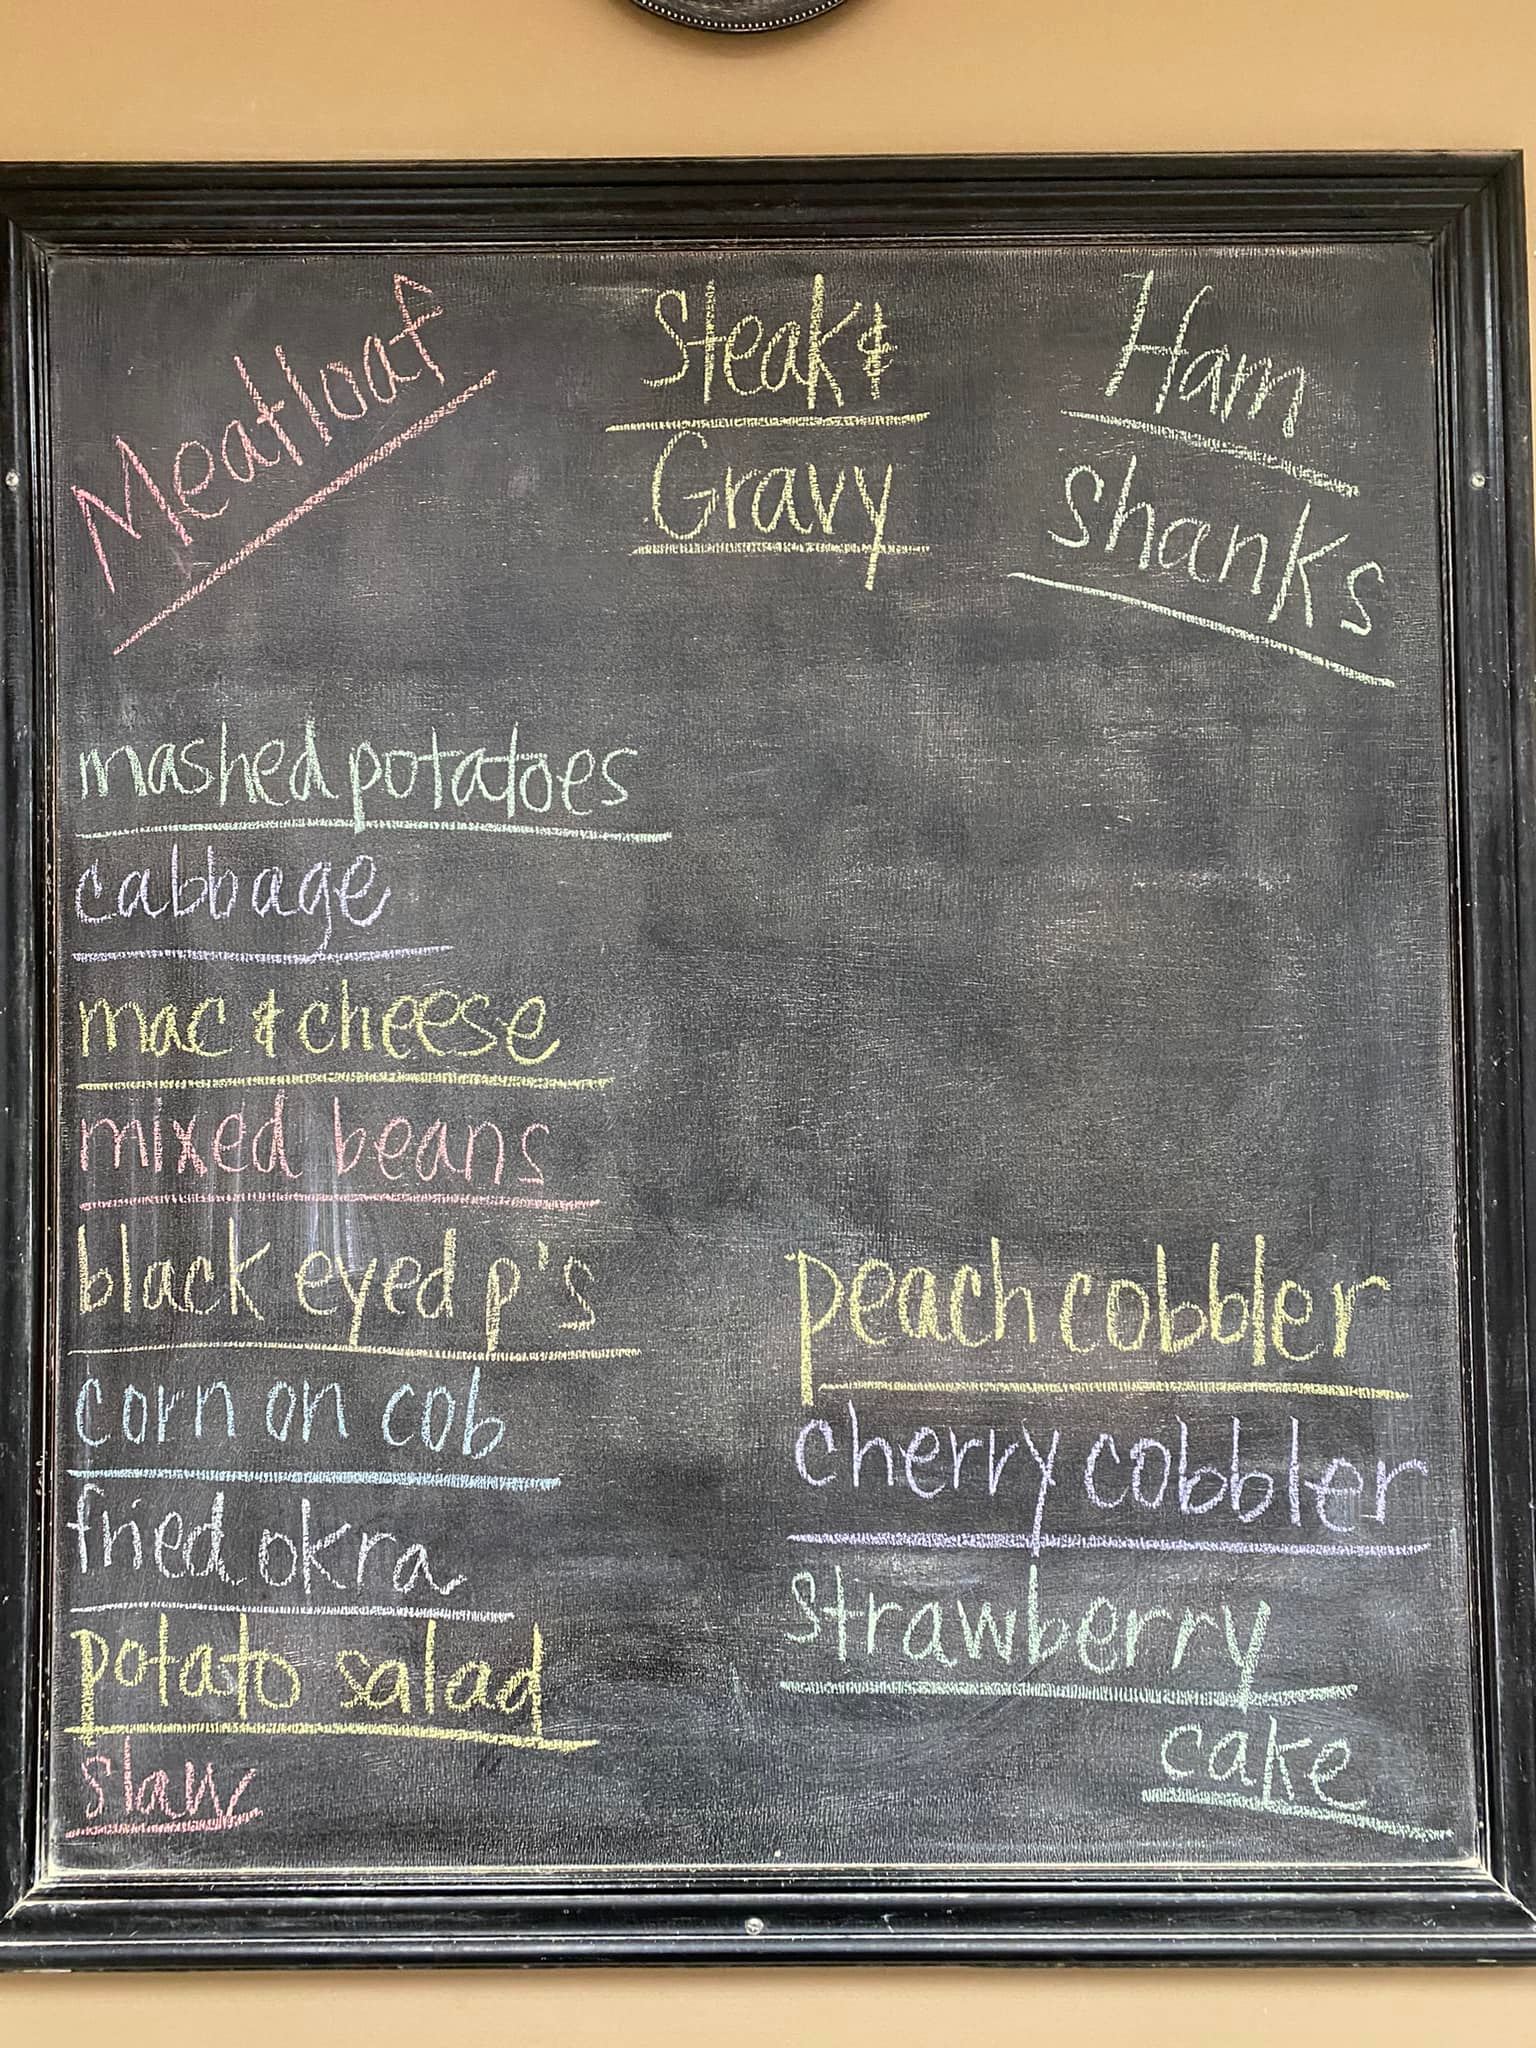 Meatloaf
Steak &
Gravy
Ham
Shanks
mashed potatoes
cabbage
mac & cheese
mixed beans
black eyed p's
corn on cob
fried okra
potato salad
slaw
peach cobbler
cherry cobbler
strawberry
cake